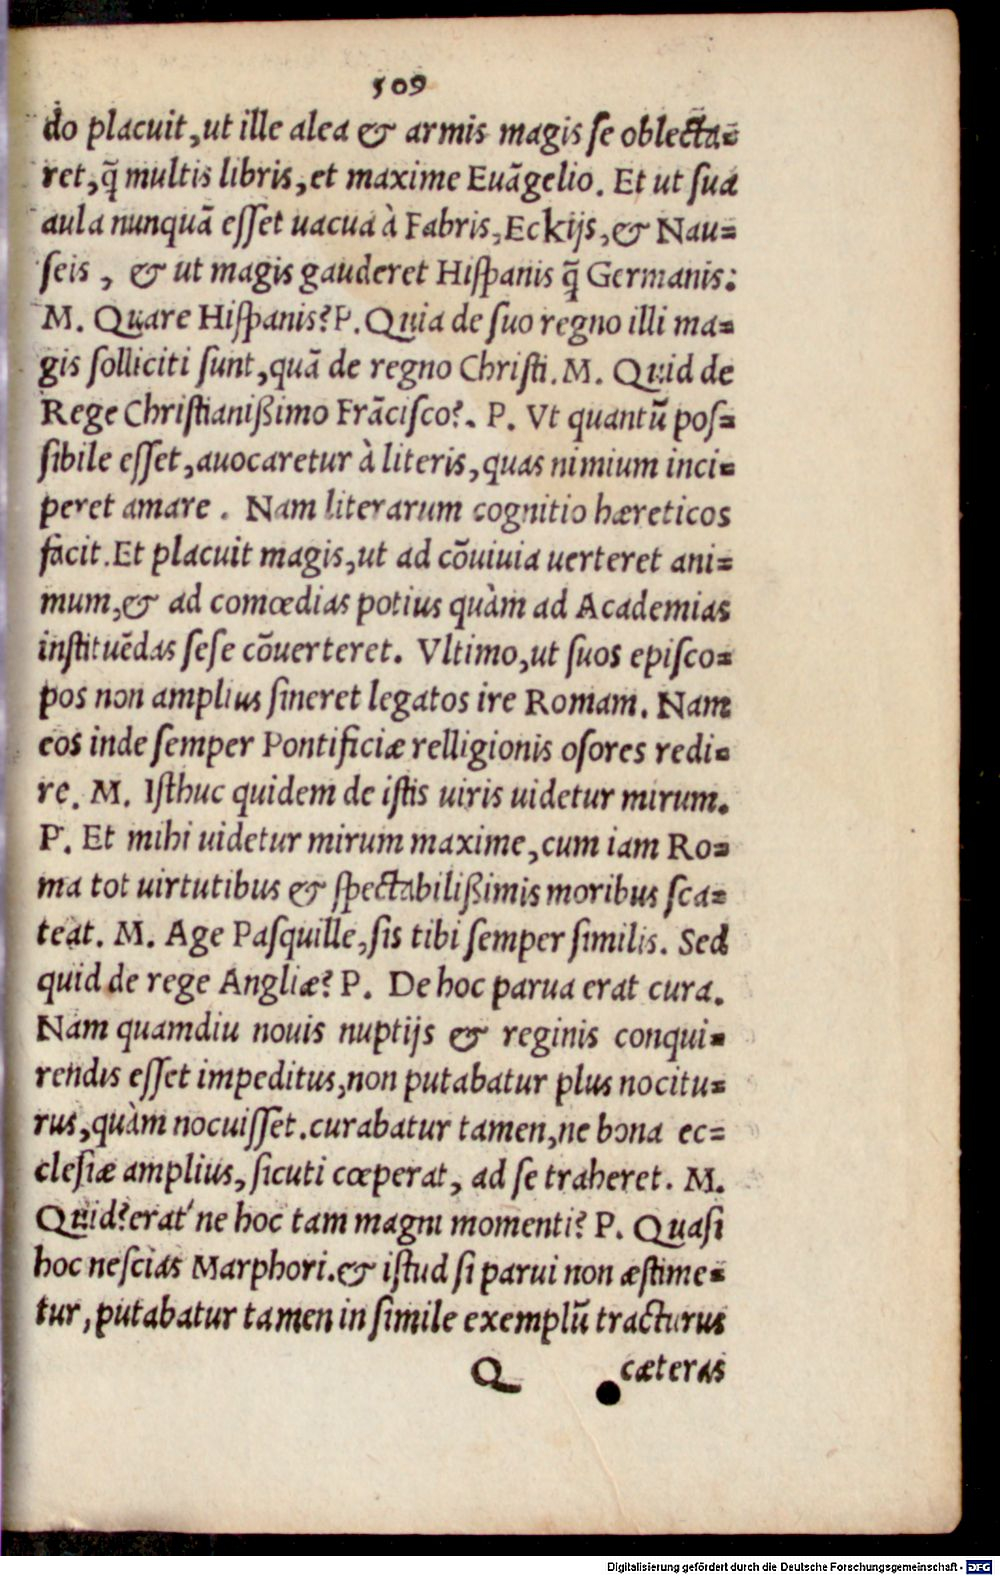 509
do placuit, ut ille alea & armis magis se oblecta=
ret, q̃ multis libris, et maxime Euãgelio. Et ut sua
aula nunquã esset uacua à Fabris, Eckijs, & Nau=
seis, & ut magis gauderet Hispanis q̃ Germanis:
M. Quare Hispanis? P. Quia de suo regno illi ma=
gis solliciti sunt, quã de regno Christi. M. Quid de
Rege Christianißimo Frãcisco?. P. Vt quantũ pos=
sibile esset, auocaretur à literis, quas nimium inci=
peret amare. Nam literarum cognitio hæreticos
facit. Et placuit magis, ut ad cõuiuia uerteret ani=
mum, & ad comœdias potius quàm ad Academias
instituẽdas sese cõuerteret. Vltimo, ut suos episco=
pos non amplius sineret legatos ire Romam. Nam
eos inde semper Pontificiæ relligionis osores redi=
re. M. Isthuc quidem de istis uiris uidetur mirum.
P. Et mihi uidetur mirum maxime, cum iam Ro=
ma tot uirtutibus & spectabilißimis moribus sca=
teat. M. Age Pasquille, sis tibi semper similis. Sed
quid de rege Angliæ? P. De hoc parua erat cura.
Nam quamdiu nouis nuptijs & reginis conqui=
rendis esset impeditus, non putabatur plus nocitu=
rus, quàm nocuisset. curabatur tamen, ne bona ec=
clesiæ amplius, sicuti cœperat, ad se traheret. M.
Quid? erat'ne hoc tam magni momenti? P. Quasi
hoc nescias Marphori. & istud si parui non æstime=
tur, putabatur tamen in simile exemplũ tracturus
Q cæteras
Digitalisierung gefördert durch die Deutsche Forschungsgemeinschaft - DFG